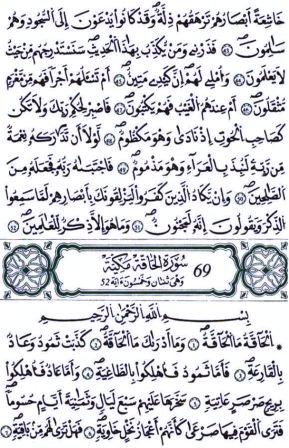 خَاشِعَةً أَبْصَارُهُمْ تَرْهَقُهُمْ ذِلَّةٌ وَقَدْ كَانُوا يُدْعَوْنَ إِلَى السُّجُودِ وَهُمْ
سَالِمُونَ ٤٣ فَذَرْنِي وَمَنْ يُكَذِّبُ بِهَذَا الْحَدِيثِ سَنَسْتَدْرِجُهُمْ مِنْ حَيْثُ
لَا يَعْلَمُونَ ٤٤ وَأُمْلِي لَهُمْ إِنَّ كَيْدِي مَتِينٌ ٤٥ أَمْ تَسْأَلُهُمْ أَجْرًا فَهُمْ مِنْ مَغْرَمٍ
مُثْقَلُونَ ٤٦ أَمْ عِنْدَهُمُ الْغَيْبُ فَهُمْ يَكْتُبُونَ ٤٧ فَاصْبِرْ لِحُكْمِ رَبِّكَ وَلَا تَكُنْ
كَصَاحِبِ الْحُوتِ إِذْ نَادَى وَهُوَ مَكْظُومٌ ٤٨ لَوْلَا أَنْ تَدَارَكَهُ نِعْمَةٌ
مِنْ رَبِّهِ لَنُبِذَ بِالْعَرَاءِ وَهُوَ مَذْمُومٌ ٤٩ فَاجْتَبَاهُ رَبُّهُ فَجَعَلَهُ مِنَ
الصَّالِحِينَ ٥٠ وَإِنْ يَكَادُ الَّذِينَ كَفَرُوا لَيُزْلِقُونَكَ بِأَبْصَارِهِمْ لَمَّا سَمِعُوا
الذِّكْرَ وَيَقُولُونَ إِنَّهُ لَمَجْنُونٌ ٥١ وَمَا هُوَ إِلَّا ذِكْرٌ لِلْعَالَمِينَ ٥٢
69 سُورَةُ الْحَاقَّةِ مَكِّيَّةٌ
وَهِيَ ثْنَتَانِ وَخَمْسُونَ آيَةً 52
بِسْمِ اللَّهِ الرَّحْمَنِ الرَّحِيمِ
الْحَاقَّةُ مَا الْحَاقَّةُ ١ وَمَا أَدْرَاكَ مَا الْحَاقَّةُ ٢ كَذَّبَتْ ثَمُودُ وَعَادٌ
بِالْقَارِعَةِ ٣ فَأَمَّا ثَمُودُ فَأُهْلِكُوا بِالطَّاغِيَةِ ٤ وَأَمَّا عَادٌ فَأُهْلِكُوا
بِرِيحٍ صَرْصَرٍ عَاتِيَةٍ ٥ سَخَّرَهَا عَلَيْهِمْ سَبْعَ لَيَالٍ وَثَمَانِيَةَ أَيَّامٍ حُسُومًا
فَتَرَى الْقَوْمَ فِيهَا صَرْعَى كَأَنَّهُمْ أَعْجَازُ نَخْلٍ خَاوِيَةٍ ٦ فَهَلْ تَرَى لَهُمْ مِنْ بَاقِيَةٍ ٧